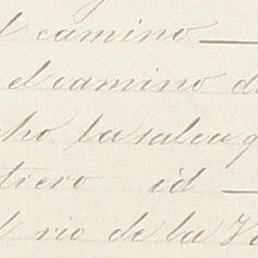 l camino
el camino d
cho la salcu q
tiero id
l rio de la V